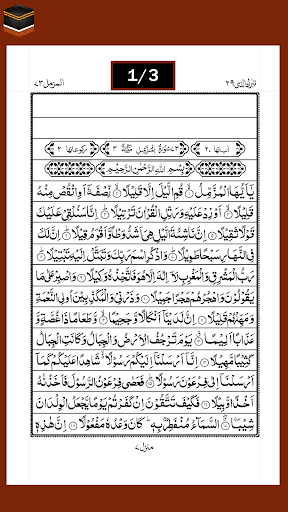 تبٰرك الذی ٢٩
1/3
المزمل ٧٣
اٰیاتها ٢٠ ٧٣ سُوْرَةُ الْمُزَّمِّلِ مَكِّيَّةٌ ٣ رکوعاتها ٢
بِسْمِ اللهِ الرَّحْمٰنِ الرَّحِيْمِ
يٰۤاَيُّهَا الْمُزَّمِّلُ ۝١ قُمِ الَّيْلَ اِلَّا قَلِيْلًا ۝٢ نِّصْفَهٗۤ اَوِ انْقُصْ مِنْهُ
قَلِيْلًا ۝٣ اَوْ زِدْ عَلَيْهِ وَرَتِّلِ الْقُرْاٰنَ تَرْتِيْلًا ۝٤ اِنَّا سَنُلْقِيْ عَلَيْكَ
قَوْلًا ثَقِيْلًا ۝٥ اِنَّ نَاشِئَةَ الَّيْلِ هِيَ اَشَدُّ وَطْاً وَّاَقْوَمُ قِيْلًا ۝٦ اِنَّ لَكَ
فِي النَّهَارِ سَبْحًا طَوِيْلًا ۝٧ وَاذْكُرِ اسْمَ رَبِّكَ وَتَبَتَّلْ اِلَيْهِ تَبْتِيْلًا ۝٨
رَبُّ الْمَشْرِقِ وَالْمَغْرِبِ لَاۤ اِلٰهَ اِلَّا هُوَ فَاتَّخِذْهُ وَكِيْلًا ۝٩ وَاصْبِرْ عَلٰى مَا
يَقُوْلُوْنَ وَاهْجُرْهُمْ هَجْرًا جَمِيْلًا ۝١٠ وَذَرْنِيْ وَالْمُكَذِّبِيْنَ اُولِي النَّعْمَةِ
وَمَهِّلْهُمْ قَلِيْلًا ۝١١ اِنَّ لَدَيْنَاۤ اَنْكَالًا وَّجَحِيْمًا ۝١٢ وَّطَعَامًا ذَا غُصَّةٍ وَّ
عَذَابًا اَلِيْمًا ۝١٣ يَوْمَ تَرْجُفُ الْاَرْضُ وَالْجِبَالُ وَكَانَتِ الْجِبَالُ
كَثِيْبًا مَّهِيْلًا ۝١٤ اِنَّاۤ اَرْسَلْنَاۤ اِلَيْكُمْ رَسُوْلًا شَاهِدًا عَلَيْكُمْ كَمَاۤ
اَرْسَلْنَاۤ اِلٰى فِرْعَوْنَ رَسُوْلًا ۝١٥ فَعَصٰى فِرْعَوْنُ الرَّسُوْلَ فَاَخَذْنٰهُ
اَخْذًا وَّبِيْلًا ۝١٦ فَكَيْفَ تَتَّقُوْنَ اِنْ كَفَرْتُمْ يَوْمًا يَّجْعَلُ الْوِلْدَانَ
شِيْبًا ۝١٧ السَّمَآءُ مُنْفَطِرٌۢ بِهٖ كَانَ وَعْدُهٗ مَفْعُوْلًا ۝١٨ اِنَّ هٰذِهٖ
منزل ٧